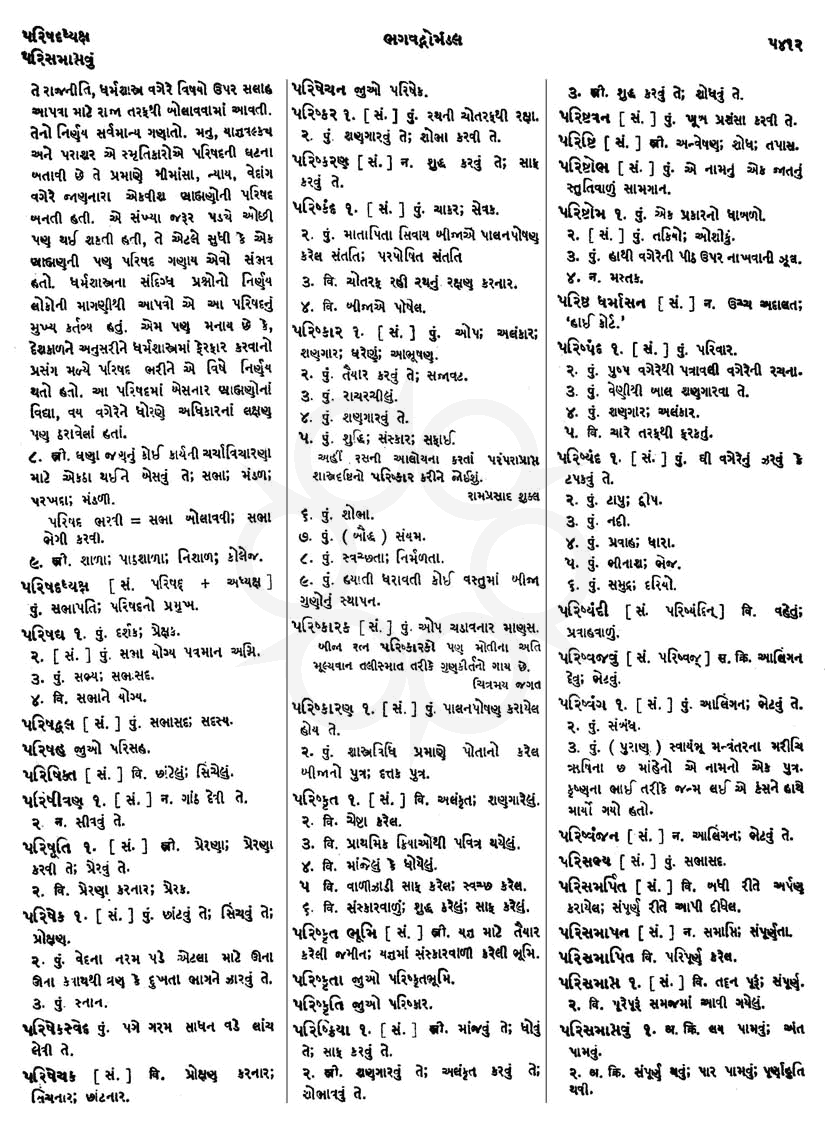 પરિષદધ્યક્ષ
પરિસમાસવું
ભગવદ્ગોમંડલ
૫૪૧૨
તે રાજનીતિ, ધર્મશાસ્ત્ર વગેરે વિષયો ઉપર સલાહ
આપવા માટે રાજા તરફથી બોલાવવામાં આવતી.
તેનો નિર્ણય સર્વમાન્ય ગણાતો. મનુ, યાજ્ઞવલ્ક્ય
અને પરાશર એ સ્મૃતિકારોએ પરિષદની ઘટના
બતાવી છે તે પ્રમાણે મીમાંસા, ન્યાય, વેદાંગ
વગેરે જાણનારા એકવીશ બ્રાહ્મણોની પરિષદ
બનતી હતી. એ સંખ્યા જરૂર પડ્યે ઓછી
પણ થઈ શકતી હતી, તે એટલે સુધી કે એક
બ્રાહ્મણની પણ પરિષદ ગણાય એવો સંભવ
હતો. ધર્મશાસ્ત્રના સંદિગ્ધ પ્રશ્નોનો નિર્ણય
લોકોની માગણીથી આપવો એ આ પરિષદનું
મુખ્ય કર્તવ્ય હતું. એમ પણ મનાય છે કે,
દેશકાળને અનુસરીને ધર્મશાસ્ત્રમાં ફેરફાર કરવાનો
પ્રસંગ મળ્યે પરિષદ ભરીને એ વિષે નિર્ણય
થતો હતો. આ પરિષદમાં બેસનાર બ્રાહ્મણોનાં
વિદ્યા, વય વગેરેને ધોરણે અધિકારનાં લક્ષણ
પણ ઠરાવેલાં હતાં.
૮. સ્ત્રી. ઘણા જણનું કોઈ કાર્યની ચર્ચાવિચારણા
માટે એકઠા થઈને બેસવું તે; સભા; મંડળ;
પરખદા; મંડળી.
પરિષદ ભરવી = સભા બોલાવવી; સભા
ભેગી કરવી.
૯. સ્ત્રી. શાળા; પાઠશાળા; નિશાળ; કૉલેજ.
પરિષદધ્યક્ષ [ સં. પરિષદ્ + અધ્યક્ષ ]
પું. સભાપતિ; પરિષદનો પ્રમુખ.
પરિષદ્ય ૧. પું. દર્શક; પ્રેક્ષક.
૨. [ સં. ] પું. સભા યોગ્ય પવમાન અગ્નિ.
૩. પું. સભ્ય; સભાસદ.
૪. વિ. સભાને યોગ્ય.
પરિષદ્વલ [ સં. ] પું. સભાસદ; સદસ્ય.
પરિષહ જુઓ પરિસહ.
પરિષિક્ત [ સં. ] વિ. છાંટેલું; સિંચેલું.
પરિષીવણ ૧. [ સં. ] ન. ગાંઠ દેવી તે.
૨. ન. સીવવું તે.
પરિષૂતિ ૧. [ સં. ] સ્ત્રી. પ્રેરણા; પ્રેરણા
કરવી તે; પ્રેરવું તે.
૨. વિ. પ્રેરણા કરનાર; પ્રેરક.
પરિષેક ૧. [ સં. ] પું. છાંટવું તે; સિંચવું તે;
પ્રોક્ષણ.
૨. પું. વેદના નરમ પડે એટલા માટે ઊના
ઊના ક્વાથથી વ્રણ કે દુખતા ભાગને ઝારવું તે.
૩. પું. સ્નાન.
પરિષેકસ્વેદ પું. પગે ગરમ સાધન વડે લાંચ
લેવી તે.
પરિષેચક [ સં. ] વિ. પ્રોક્ષણ કરનાર;
સિંચનાર; છાંટનાર.
પરિષેચન જુઓ પરિષેક.
પરિષ્કર ૧. [ સં. ] પું. રથની ચોતરફથી રક્ષા.
૨. પું. શણગારવું તે; શોભા કરવી તે.
પરિષ્કરણ [ સં. ] ન. શુદ્ધ કરવું તે; સાફ
કરવું તે.
પરિષ્કંદ ૧. [ સં. ] પું. ચાકર; સેવક.
૨. પું. માતાપિતા સિવાય બીજાએ પાલનપોષણ
કરેલ સંતતિ; પરપોષિત સંતતિ
૩. વિ. ચોતરફ રહી રથનું રક્ષણ કરનાર.
૪. વિ. બીજાએ પોષેલ.
પરિષ્કાર ૧. [ સં. ] પું. ઓપ; અલંકાર;
શણગાર; ઘરેણું; આભૂષણ.
૨. પું. તૈયાર કરવું તે; સજાવટ.
૩. પું. રાચરચીલું.
૪. પું. શણગારવું તે.
૫. પું. શુદ્ધિ; સંસ્કાર; સફાઈ.
અહીં રસની આલોચના કરતાં પરંપરાપ્રાપ્ત
શાસ્ત્રદૃષ્ટિનો પરિષ્કાર કરીને જોઈશું.
રામપ્રસાદ શુક્લ
૬. પું. શોભા.
૭. પું. ( બૌદ્ધ ) સંયમ.
૮. પું. સ્વચ્છતા; નિર્મળતા.
૯. પું. હયાતી ધરાવતી કોઈ વસ્તુમાં બીજા
ગુણોનું સ્થાપન.
પરિષ્કારક [ સં. ] પું. ઓપ ચડાવનાર માણસ.
બીજા રત્ન પરિષ્કારકો પણ મોતીના અતિ
મૂલ્યવાન તલીસ્માત તરીકે ગુણકીર્તનો ગાય છે.
ચિત્રમય જગત
પરિષ્કારણ ૧. [ સં. ] પું. પાલનપોષણ કરાયેલ
હોય તે.
૨. પું. શાસ્ત્રવિધિ પ્રમાણે પોતાનો કરેલ
બીજાનો પુત્ર; દત્તક પુત્ર.
પરિષ્કૃત ૧. [ સં. ] વિ. અલંકૃત; શણગારેલું.
૨. વિ. ચેષ્ટા કરેલ.
૩. વિ. પ્રાથમિક ક્રિયાઓથી પવિત્ર થયેલું.
૪. વિ. માંજેલું કે ધોયેલું.
૫ વિ. વાળીઝાડી સાફ કરેલ; સ્વચ્છ કરેલ.
૬. વિ. સંસ્કારવાળું; શુદ્ધ કરેલું; સાફ કરેલું.
પરિષ્કૃત ભૂમિ [ સં. ] સ્ત્રી. યજ્ઞ માટે તૈયાર
કરેલી જમીન; યજ્ઞમાં સંસ્કારવાળી કરેલી ભૂમિ.
પરિષ્કૃતા જુઓ પરિષ્કૃતભૂમિ.
પરિષ્કૃતિ જુઓ પરિષ્કાર.
પરિષ્ક્રિયા ૧. [ સં. ] સ્ત્રી. માંજવું તે; ધોવું
તે; સાફ કરવું તે.
૨. સ્ત્રી. શણગારવું તે; અલંકૃત કરવું તે;
શોભાવવું તે.
૩. સ્ત્રી. શુદ્ધ કરવું તે; શોધવું તે.
પરિષ્ટવન [ સં. ] પું. ખૂબ પ્રશંસા કરવી તે.
પરિષ્ટિ [ સં. ] સ્ત્રી. અન્વેષણ; શોધ; તપાસ.
પરિષ્ટોભ [ સં. ] પું. એ નામનું એક જાતનું
સ્તુતિવાળું સામગાન.
પરિષ્ટોમ ૧. પું. એક પ્રકારનો ધાબળો.
૨. [ સં. ] પું. તકિયો; ઓશીકું.
૩. પું. હાથી વગેરેની પીઠ ઉપર નાખવાની ઝૂલ.
૪. ન. મસ્તક.
પરિષ્ઠ ધર્માસન [ સં. ] ન. ઉચ્ચ અદાલત;
‘હાઈ કોર્ટ.’
પરિષ્પંદ ૧. [ સં. ] પું. પરિવાર.
૨. પું. પુષ્પ વગેરેથી પત્રાવલી વગેરેની રચના.
૩. પું. વેણીથી બાલ શણગારવા તે.
૪. પું. શણગાર; અલંકાર.
૫. વિ. ચારે તરફથી ફરકતું.
પરિષ્યંદ ૧. [ સં. ] પું. ઘી વગેરેનું ઝરવું કે
ટપકવું તે.
૨. પું. ટાપુ; દ્વીપ.
૩. પું. નદી.
૪. પું. પ્રવાહ; ધારા.
૫. પું. ભીનાશ; ભેજ.
૬. પું. સમુદ્ર; દરિયો.
પરિષ્યંદી [ સં. પરિષ્યંદિન્ ] વિ. વહેતું;
પ્રવાહવાળું.
પરિષ્વજવું [ સં. પરિષ્વજ્ ] સ. ક્રિ. આલિંગન
દેવું; ભેટવું.
પરિષ્વંગ ૧. [ સં. ] પું. આલિંગન; ભેટવું તે.
૨. પું. સંબંધ.
૩. પું. ( પુરાણ ) સ્વાયંભૂ મન્વંતરના મરીચિ
ઋષિના છ માંહેનો એ નામનો એક પુત્ર.
કૃષ્ણના ભાઈ તરીકે જન્મ લઈ એ કંસને હાથે
માર્યો ગયો હતો.
પરિષ્વંજન [ સં. ] ન. આલિંગન; ભેટવું તે.
પરિસભ્ય [ સં. ] પું. સભાસદ.
પરિસમર્પિત [ સં. ] વિ. બધી રીતે અર્પણ
કરાયેલ; સંપૂર્ણ રીતે આપી દીધેલ.
પરિસમાપન [ સં. ] ન. સમાપ્તિ; સંપૂર્ણતા.
પરિસમાપિત વિ. પરિપૂર્ણ કરેલ.
પરિસમાપ્ત ૧. [ સં. ] વિ. તદ્દન પૂરું; સંપૂર્ણ.
૨. વિ. પૂરેપૂરું સમજમાં આવી ગયેલું.
પરિસમાસવું ૧. અ. ક્રિ. લય પામવું; અંત
પામવું.
૨. અ. ક્રિ. સંપૂર્ણ થવું; પાર પામવું; પૂર્ણાહુતિ
થવી.